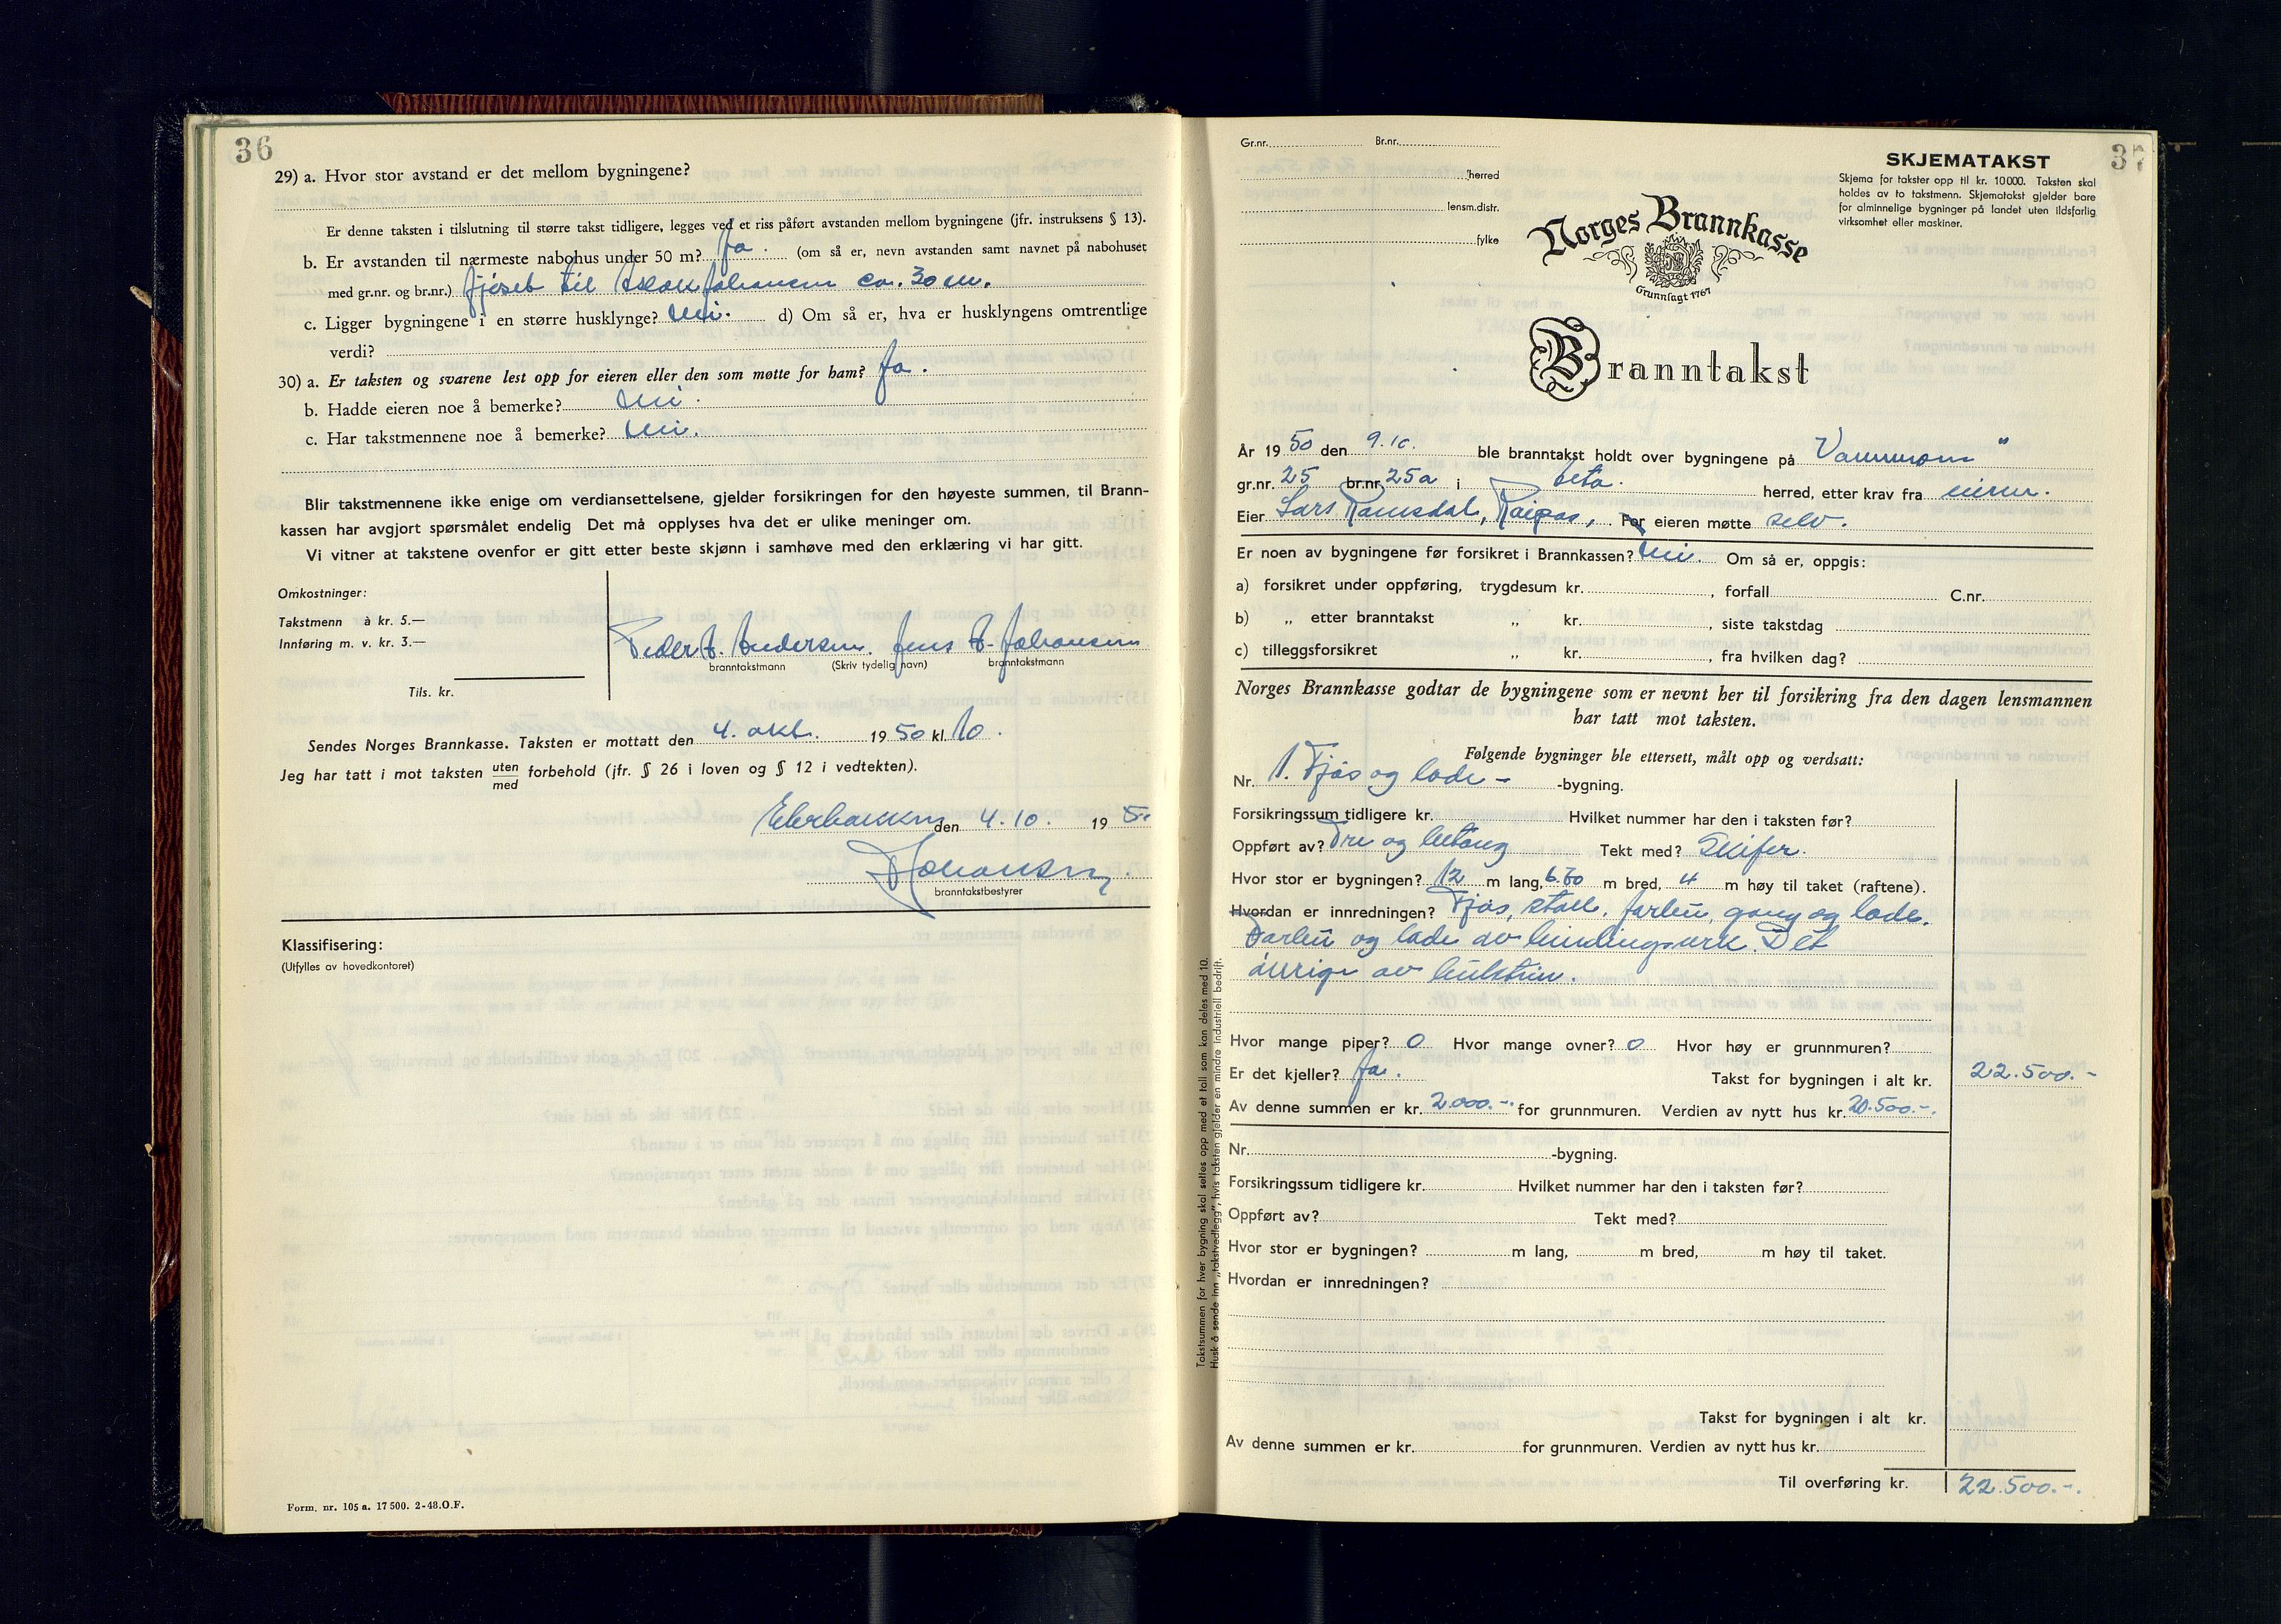 36
29) a. Hvor stor avstand er det mellom bygningene?
Er denne taksten i tilslutning til større takst tidligere, legges ved et riss påført avstanden mellom bygningene (jfr. instruksens § 13).
b. Er avstanden til nærmeste nabohus under 50 m? Ja. (om så er, nevn avstanden samt navnet på nabohuset
med gr.nr. og br.nr.) fjøset til Johansen ca. 30 m.
c. Ligger bygningene i en større husklynge? Nei. d) Om så er, hva er husklyngens omtrentlige
verdi?
30) a. Er taksten og svarene lest opp for eieren eller den som møtte for ham? Ja.
b. Hadde eieren noe å bemerke? Nei.
c. Har takstmennene noe å bemerke? Nei.
Blir takstmennene ikke enige om verdiansettelsene, gjelder forsikringen for den høyeste summen, til Brann-
kassen har avgjort spørsmålet endelig Det må opplyses hva det er ulike meninger om.
Vi vitner at takstene ovenfor er gitt etter beste skjønn i samhøve med den erklæring vi har gitt.
Omkostninger:
Takstmenn à kr. 5.—
Innføring m. v. kr. 3.—
Tils. kr.
Peder A. Andersen. Jens A. Johansen
branntakstmann (Skriv tydelig navn) branntakstmann
Sendes Norges Brannkasse. Taksten er mottatt den 4. okt. 1950 kl. 10.
Jeg har tatt i mot taksten uten forbehold (jfr. § 26 i loven og § 12 i vedtekten).
med
Elvebakken den 4.10. 1950
Johansen
branntakstbestyrer
Klassifisering:
(Utfylles av hovedkontoret)
Form. nr. 105 a. 17 500. 2-48.O.F.
37
Gr.nr. Br.nr.
herred
lensm.distr.
fylke
Norges Brannkasse
Grunnlagt 1767
SKJEMATAKST
Skjema for takster opp til kr. 10000. Taksten skal
holdes av to takstmenn. Skjematakst gjelder bare
for alminnelige bygninger på landet uten ildsfarlig
virksomhet eller maskiner.
Branntakst
År 1950 den 9.10. ble branntakst holdt over bygningene på
gr.nr. 25 br.nr. 25a i herred, etter krav fra eieren.
Eier Lars Ramsdal, Raipas, For eieren møtte selv.
Er noen av bygningene før forsikret i Brannkassen? Nei. Om så er, oppgis:
a) forsikret under oppføring, trygdesum kr. , forfall C.nr.
b) „ etter branntakst „ kr. , siste takstdag
c) tilleggsforsikret „ kr. , fra hvilken dag?
Norges Brannkasse godtar de bygningene som er nevnt her til forsikring fra den dagen lensmannen
har tatt mot taksten.
Følgende bygninger ble ettersett, målt opp og verdsatt:
Nr. 1. Fjøs og lade- -bygning.
Forsikringssum tidligere kr. Hvilket nummer har den i taksten før?
Oppført av? Tre og betong Tekt med? Skifer.
Hvor stor er bygningen? 12 m lang, 6.30 m bred, 4 m høy til taket (raftene).
Hvordan er innredningen? Fjøs, stall, forleii, gang og lade.
Forleii og lade av bindingsverk. Det
øvrige av
Hvor mange piper? 0 Hvor mange ovner? 0 Hvor høy er grunnmuren?
Er det kjeller? Ja. Takst for bygningen i alt kr. 22.500.-
Av denne summen er kr. 2.000.- for grunnmuren. Verdien av nytt hus kr. 20.500.-
Nr. -bygning.
Forsikringssum tidligere kr. Hvilket nummer har den i taksten før?
Oppført av? Tekt med?
Hvor stor er bygningen? m lang, m bred, m høy til taket.
Hvordan er innredningen?
Takst for bygningen i alt kr.
Av denne summen er kr. for grunnmuren. Verdien av nytt hus kr.
Til overføring kr. 22.500.-
Takstsummen for hver bygning skal settes opp med et tall som kan deles med 10.
Husk å sende inn „takstvedlegg", hvis taksten gjelder en mindre industriell bedrift.